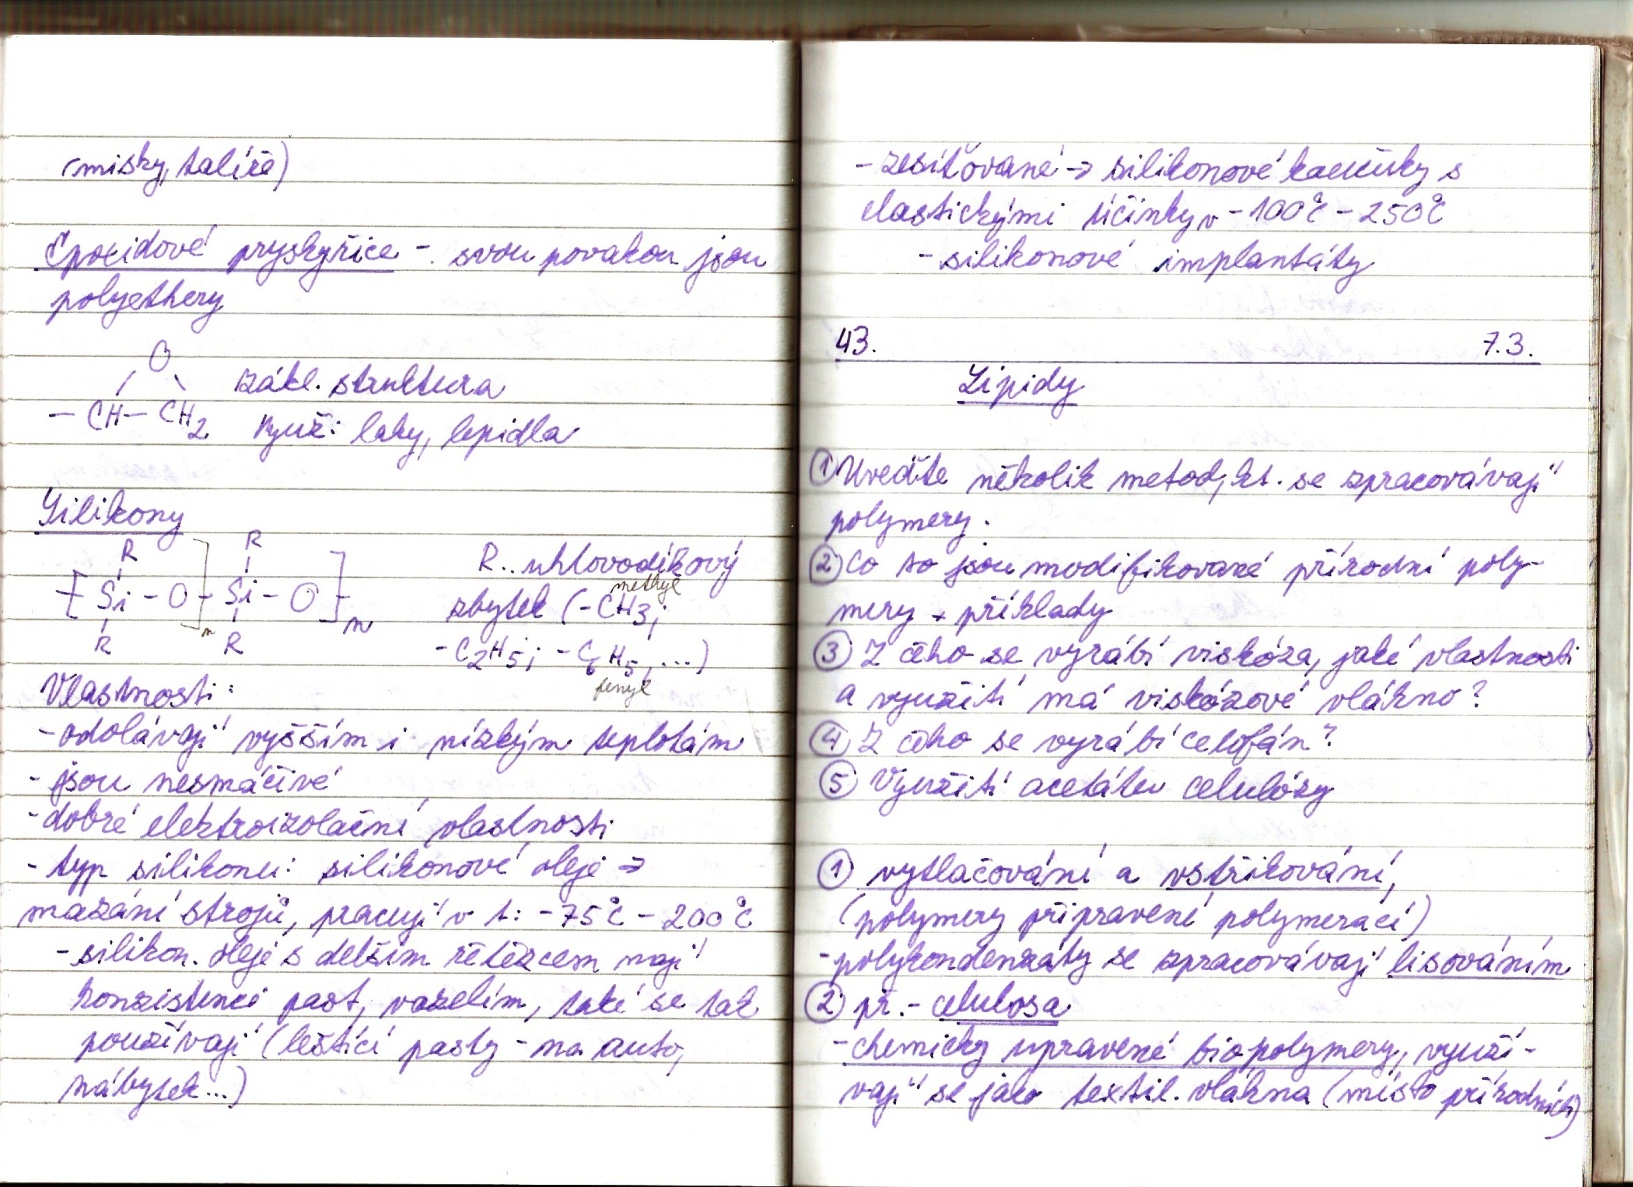 (misky, talíře)
Epoxidové pryskyřice - svou povahou jsou
polyethery
O
zákl. struktura
- CH - CH2
Využ: laky, lepidla
Silikony
R R
[Si - O]n Si - O]n
R R
R.. uhlovodíkový
methyl
zbytek (-CH3;
-C2H5; -C6H5, ...)
fenyl
Vlastnosti:
-odolávají vyšším i nízkým teplotám
- jsou nesmáčivé
-dobré elektroizolační vlastnosti
- typ silikonu: silikonové oleje →
mazání strojů, pracují v t: -75°C - 200°C
-silikon. oleje s delším řetězcem mají
konzistenci past, vazelín, také se tak
používají (leštící pasty - na auto,
nábytek...)
- zesíťované → silikonové kaučuky s
elastickými účinky v -100°C - 250°C
- silikonové implantáty
43. 7.3.
Lipidy
① Uveďte několik metod, kt. se zpracovávají
polymery.
② Co to jsou modifikované přírodní poly-
mery + příklady
③ Z čeho se vyrábí viskóza, jaké vlastnosti
a využití má viskózové vlákno?
④ Z čeho se vyrábí celofán?
⑤ Využití acetátu celulózy
① vytlačování a vstřikování,
(polymery připravené polymerací)
-polykondenzáty se zpracovávají lisováním
② př. - celulosa
-chemicky upravené biopolymery, využí-
vají se jako textil. vlákna (místo přírodních)